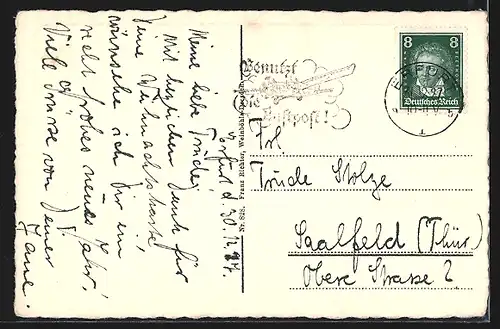 Erfurt d. 30.12.27.
Meine liebe Trude,
mit herzlichem Dank für
Deine Weihnachtskarte!
wünsche ich Dir ein
recht frohes neues Jahr,
Viele Grüsse von Deiner
Nr. 828. Franz Richter, Weinböhla
Benutzt
die
Luftpost!
8 8
Deutsches Reich
ERFURT
Frl.
Trude Stolze
Saalfeld (Thür)
Obere Strasse 2